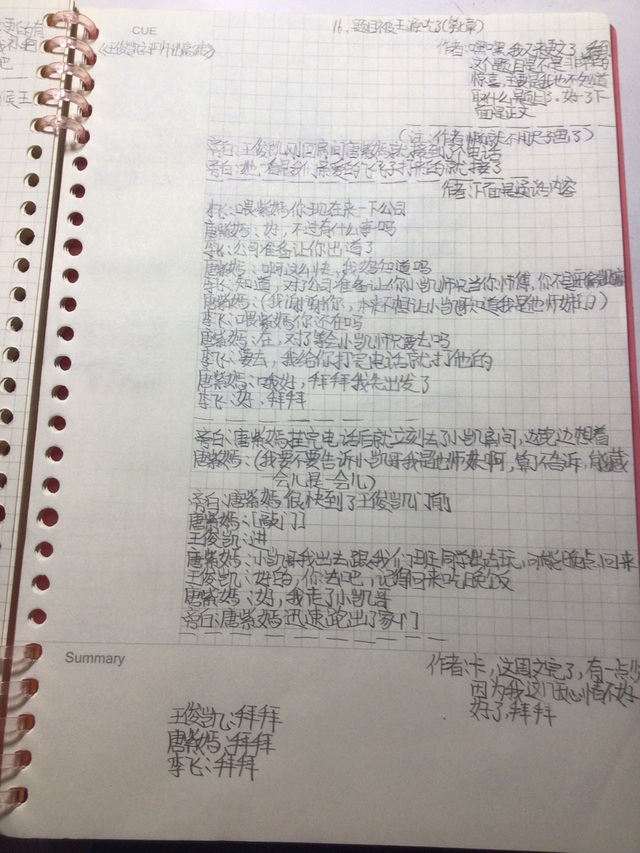 CUE
16、题目被王源吃了(第七章)
作者:嘿嘿我又来更文了,
这个题目是不是非常的
惊喜,主要是我也不知道
取什么题目了,好了下
面是正文
(注:作者懒就不用尺子画了)
旁白:王俊凯刚回房间唐紫嫣就接到个电话
作者:下面是通话内容
李飞:喂紫嫣你现在来一下公司
唐紫嫣:好,不过有什么事吗
李飞:公司准备让你出道了
唐紫嫣:啊这么快,我妈知道吗
李飞:知道,对了公司准备让你小凯师兄当你师傅,你不是
唐紫嫣:(我谢谢你,本来不想让小凯哥知道我是他师妹的)
李飞:喂紫嫣你还在吗
唐紫嫣:在,对了等会小凯师兄要去吗
李飞:要去,我给你打完电话就打他的
唐紫嫣:哦好,拜拜我先出发了
李飞:好,拜拜
旁白:唐紫嫣挂完电话后就立刻去了小凯房间,边走边想着
唐紫嫣:(我要不要告诉小凯哥我是他师妹啊,算了不告诉,能藏
一会儿是一会儿)
旁白:唐紫嫣很快到了王俊凯门前
唐紫嫣:[敲门]
王俊凯:进
唐紫嫣:小凯哥我出去跟我们班班同学出去玩,可能晚点回来
王俊凯:好的,你去吧,记得回来吃晚饭
唐紫嫣:好,我走了小凯哥
旁白:唐紫嫣迅速跑出了家门
Summary
作者:卡,这周文完了,有一点少
因为我这几天心情不好
好了,拜拜
王俊凯:拜拜
唐紫嫣:拜拜
李飞:拜拜